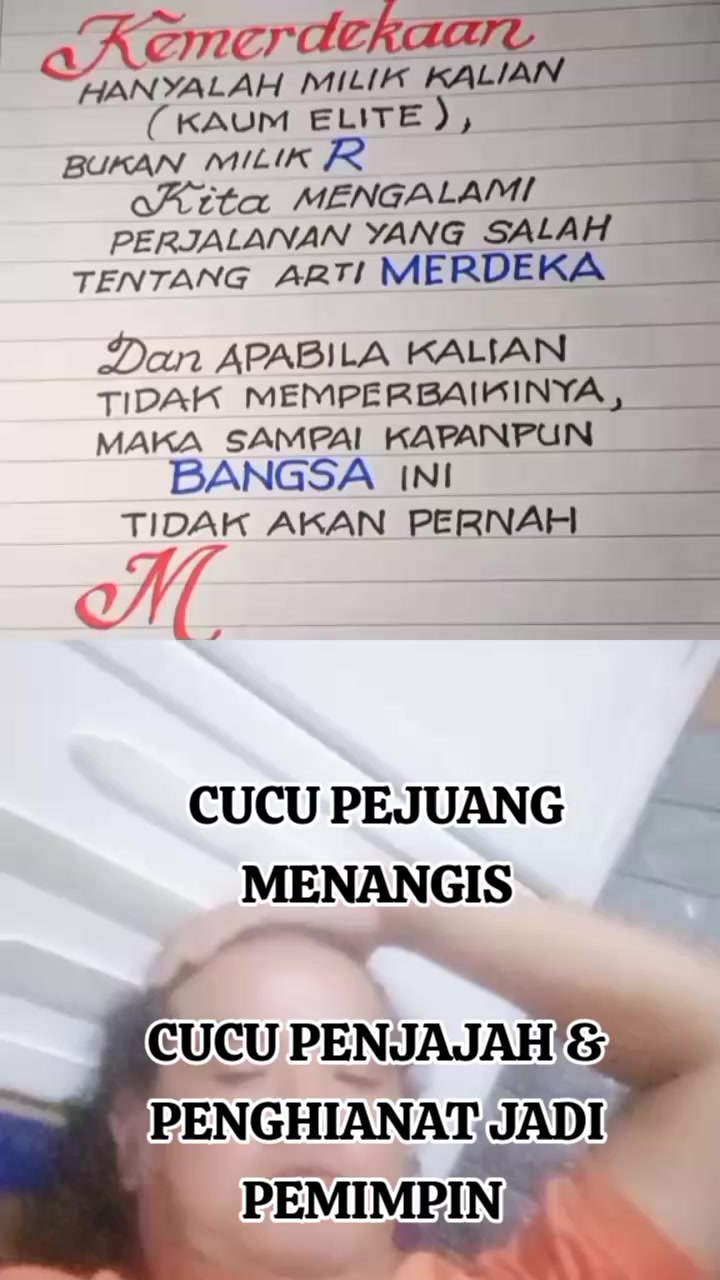 Kemerdekaan
HANYALAH MILIK KALIAN
(KAUM ELITE),
BUKAN MILIK R
Kita MENGALAMI
PERJALANAN YANG SALAH
TENTANG ARTI MERDEKA
Dan APABILA KALIAN
TIDAK MEMPERBAIKINYA,
MAKA SAMPAI KAPANPUN
BANGSA INI
TIDAK AKAN PERNAH
M
CUCU PEJUANG
MENANGIS
CUCU PENJAJAH &
PENGHIANAT JADI
PEMIMPIN